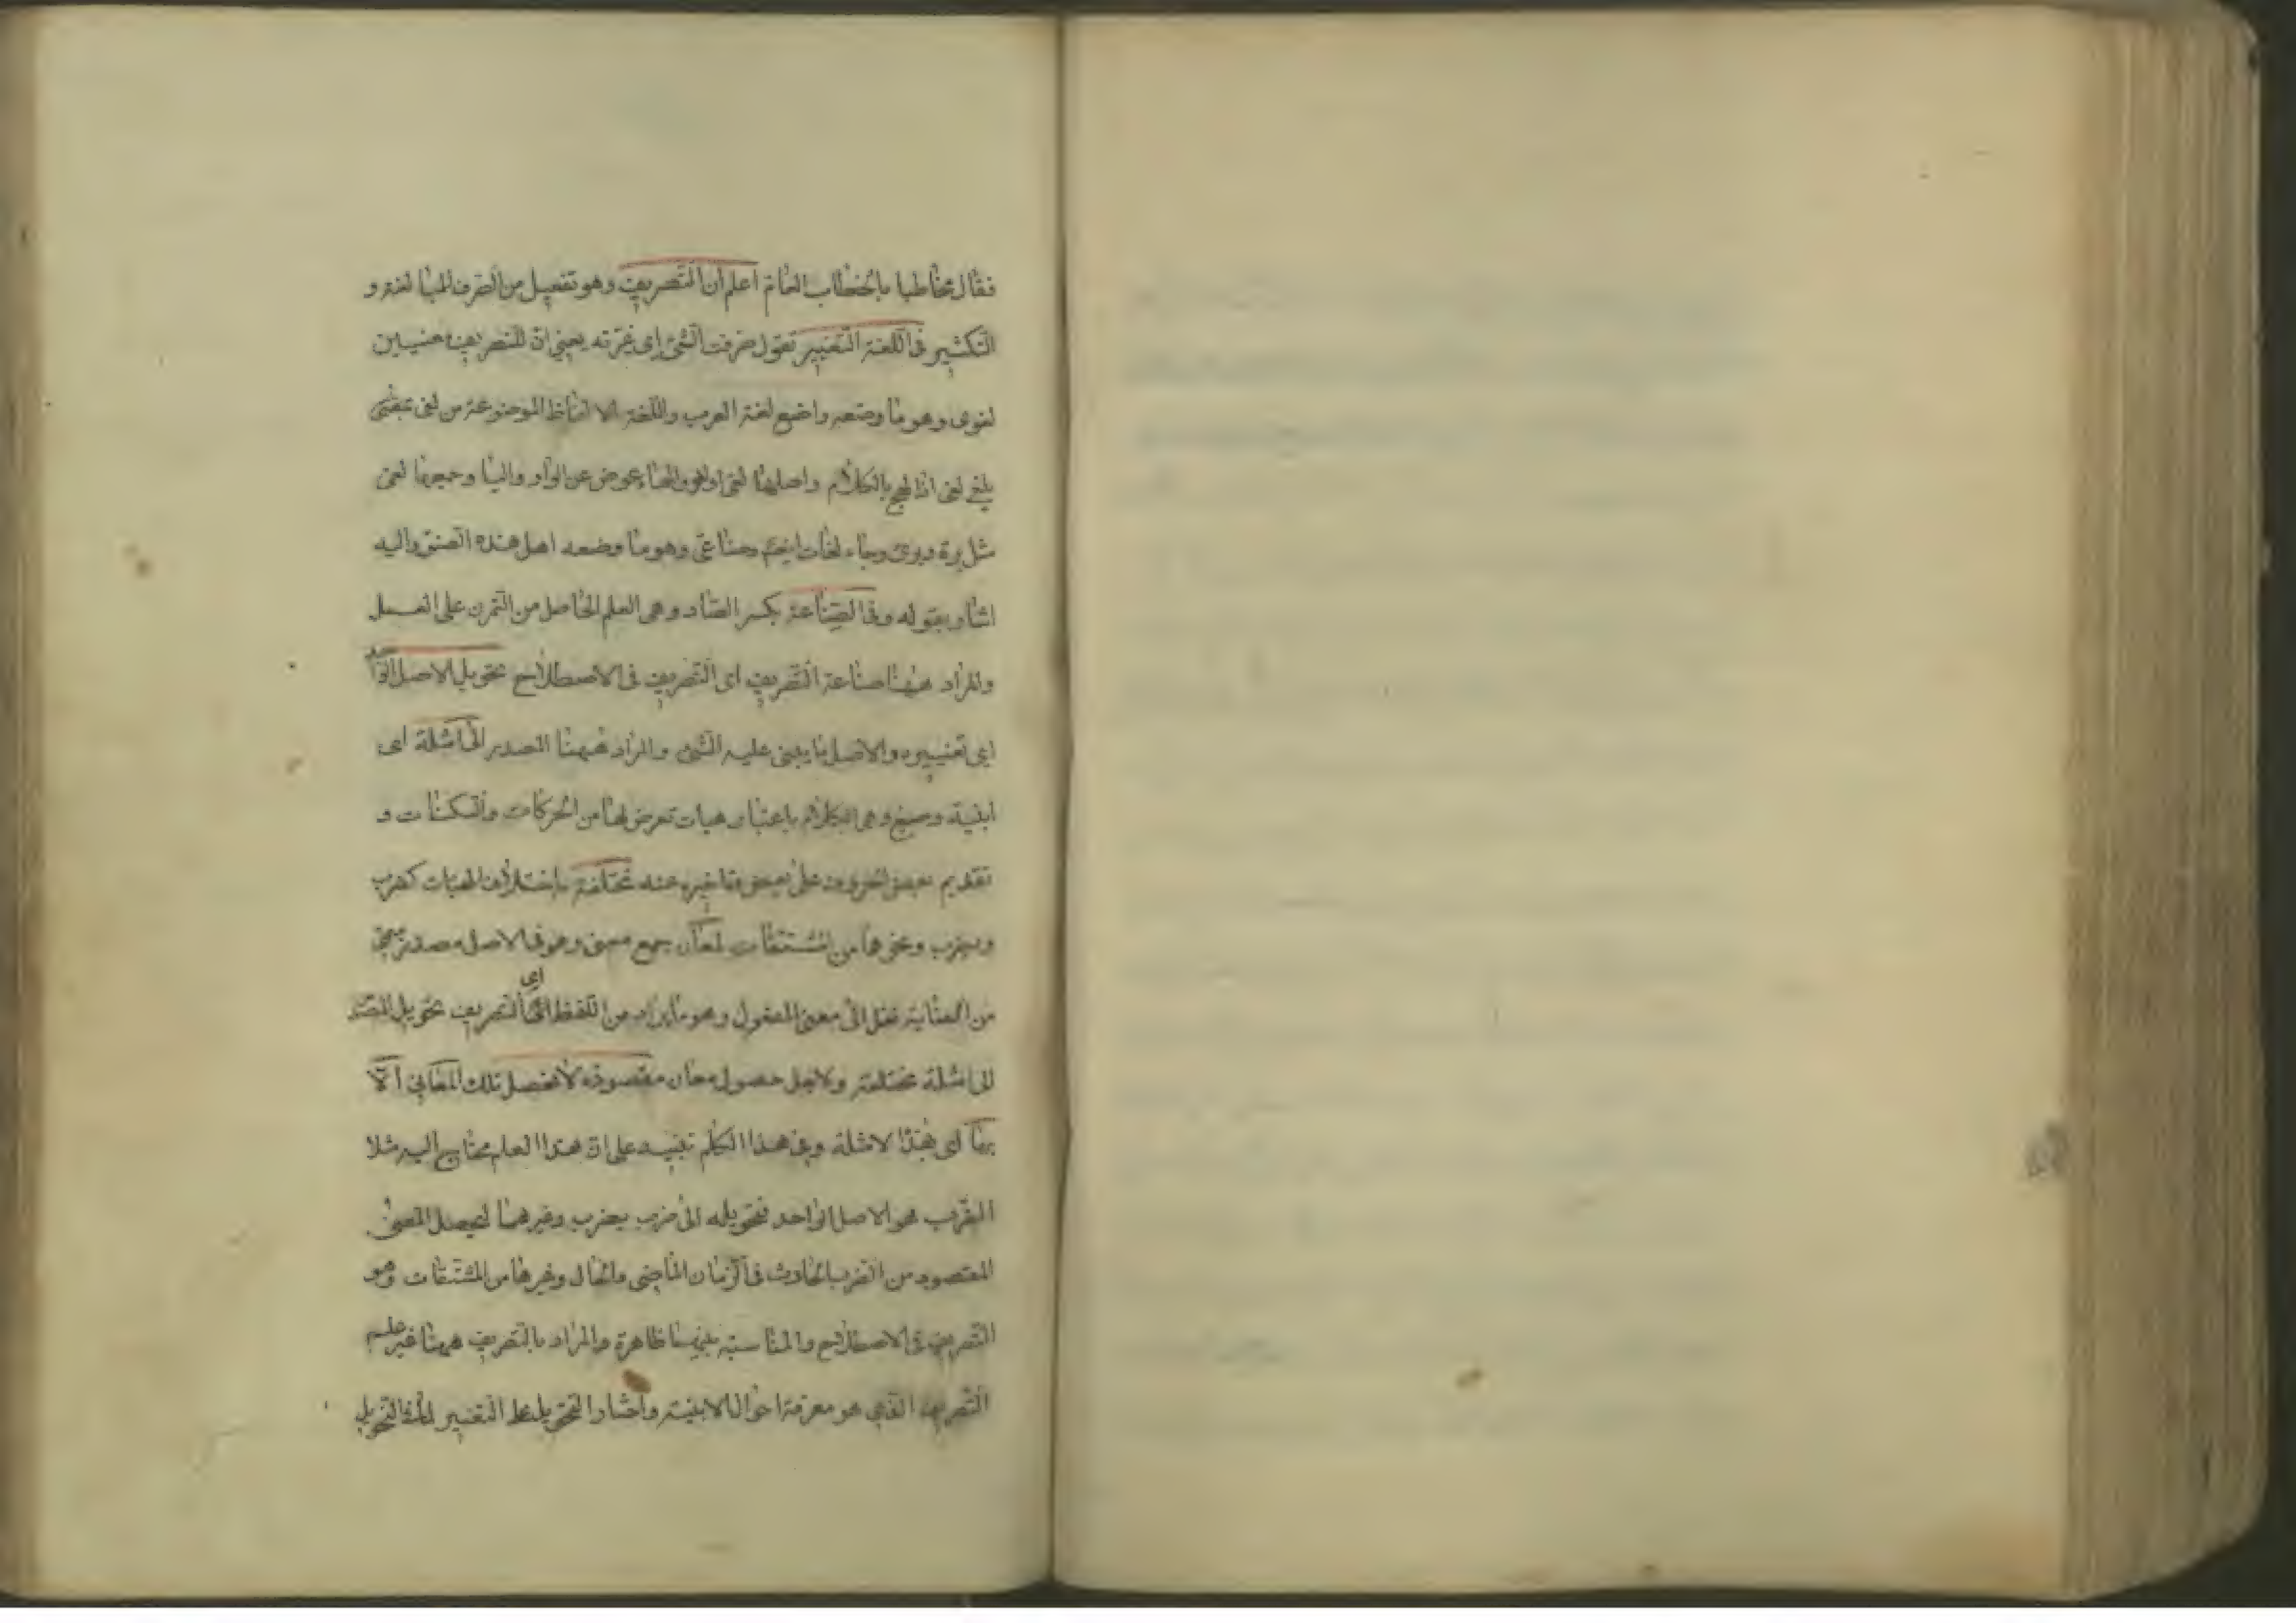 فقال مخاطبا بالخطاب العام اعلم ان التصريف وهو تفعيل من الصرف للمبالغة و
التكثير فى اللغة التغيير تقول صرفت الشئ اى غيرته يعنى ان للتصريف معنيين
لغوى وهو ما وضعه واضع لغة العرب واللغة الالفاظ الموضوعة من لغى بمعنى
يلغى لغى اذا لهج بالكلام واصلها لغى او لغو والهاء عوض عن الواو واليا وجمعها لغى
مثل برة وبرى وجاء لغات ايضا وصناعى وهو ما وضعه اهل هذه الصنعة واليه
اشار بقوله وفى الصناعة بكسر الصاد وهى العلم الحاصل من التمرن على العمل
والمراد ههنا صناعة التصريف اى التصريف فى الاصطلاح تحويل الاصل الواحد
اى تغييره والاصل ما يبنى عليه الشئ والمراد ههنا المصدر الى امثلة اى
ابنية وصيغ وهى الكلام باعتبار هيات تعرض لها من الحركات والسكنات و
تقديم بعض الحروف على بعض وتاخيره عنه مختلفة باختلاف الهيات كضرب
ويضرب ونحوهما من المشتقات لمعان جمع معنى وهو فى الاصل مصدر ميمى
من العناية نقل الى معنى المفعول وهو ما يراد من اللفظ اى التصريف تحويل المصدر
الى امثلة مختلفة ولاجل حصول معان مقصودة لا تحصل تلك المعانى الا
بها اى بهذا الامثلة وفى هذا الكلام تنبيه على ان هذا العلم محتاج اليه مثلا
الضرب هو الاصل الواحد فتحويله الى ضرب يضرب وغيرهما ليحصل المعنى
المقصود من الضرب الحادث فى الزمان الماضى والحال وغيرها من المشتقات هو
التصريف فى الاصطلاح والمناسبة بينهما ظاهرة والمراد بالتصريف ههنا غير علم
التصريف الذى هو معرفة احوال الابنية واختار التحويل على التغيير لما فى التحويل